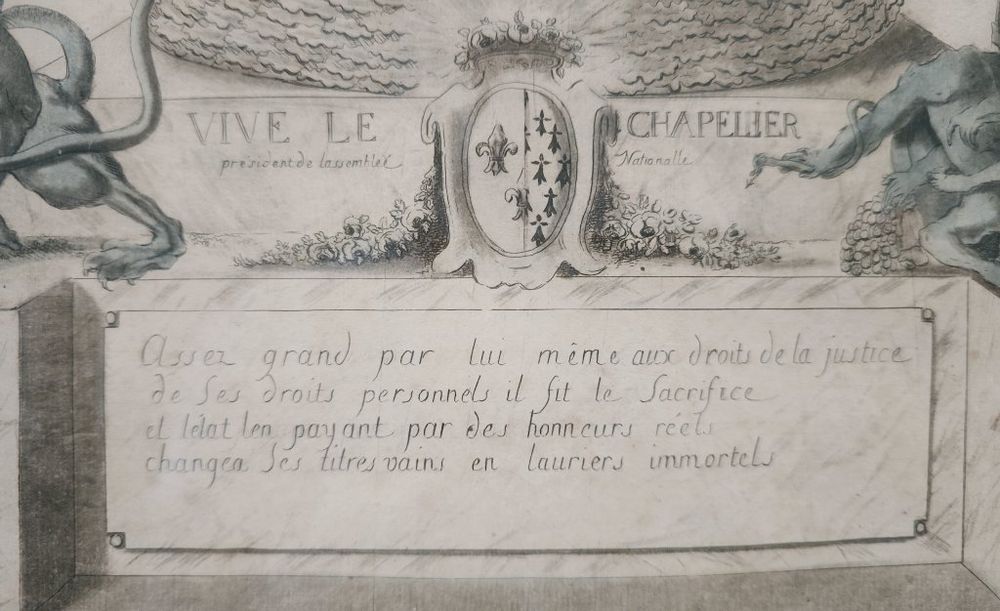 VIVE LE CHAPELIER
president de lassemblée Nationalle
Assez grand par lui même aux droits de la justice
de ses droits personnels il fit le sacrifice
et letat len payant par des honneurs réels
changea ses titres vains en lauriers immortels